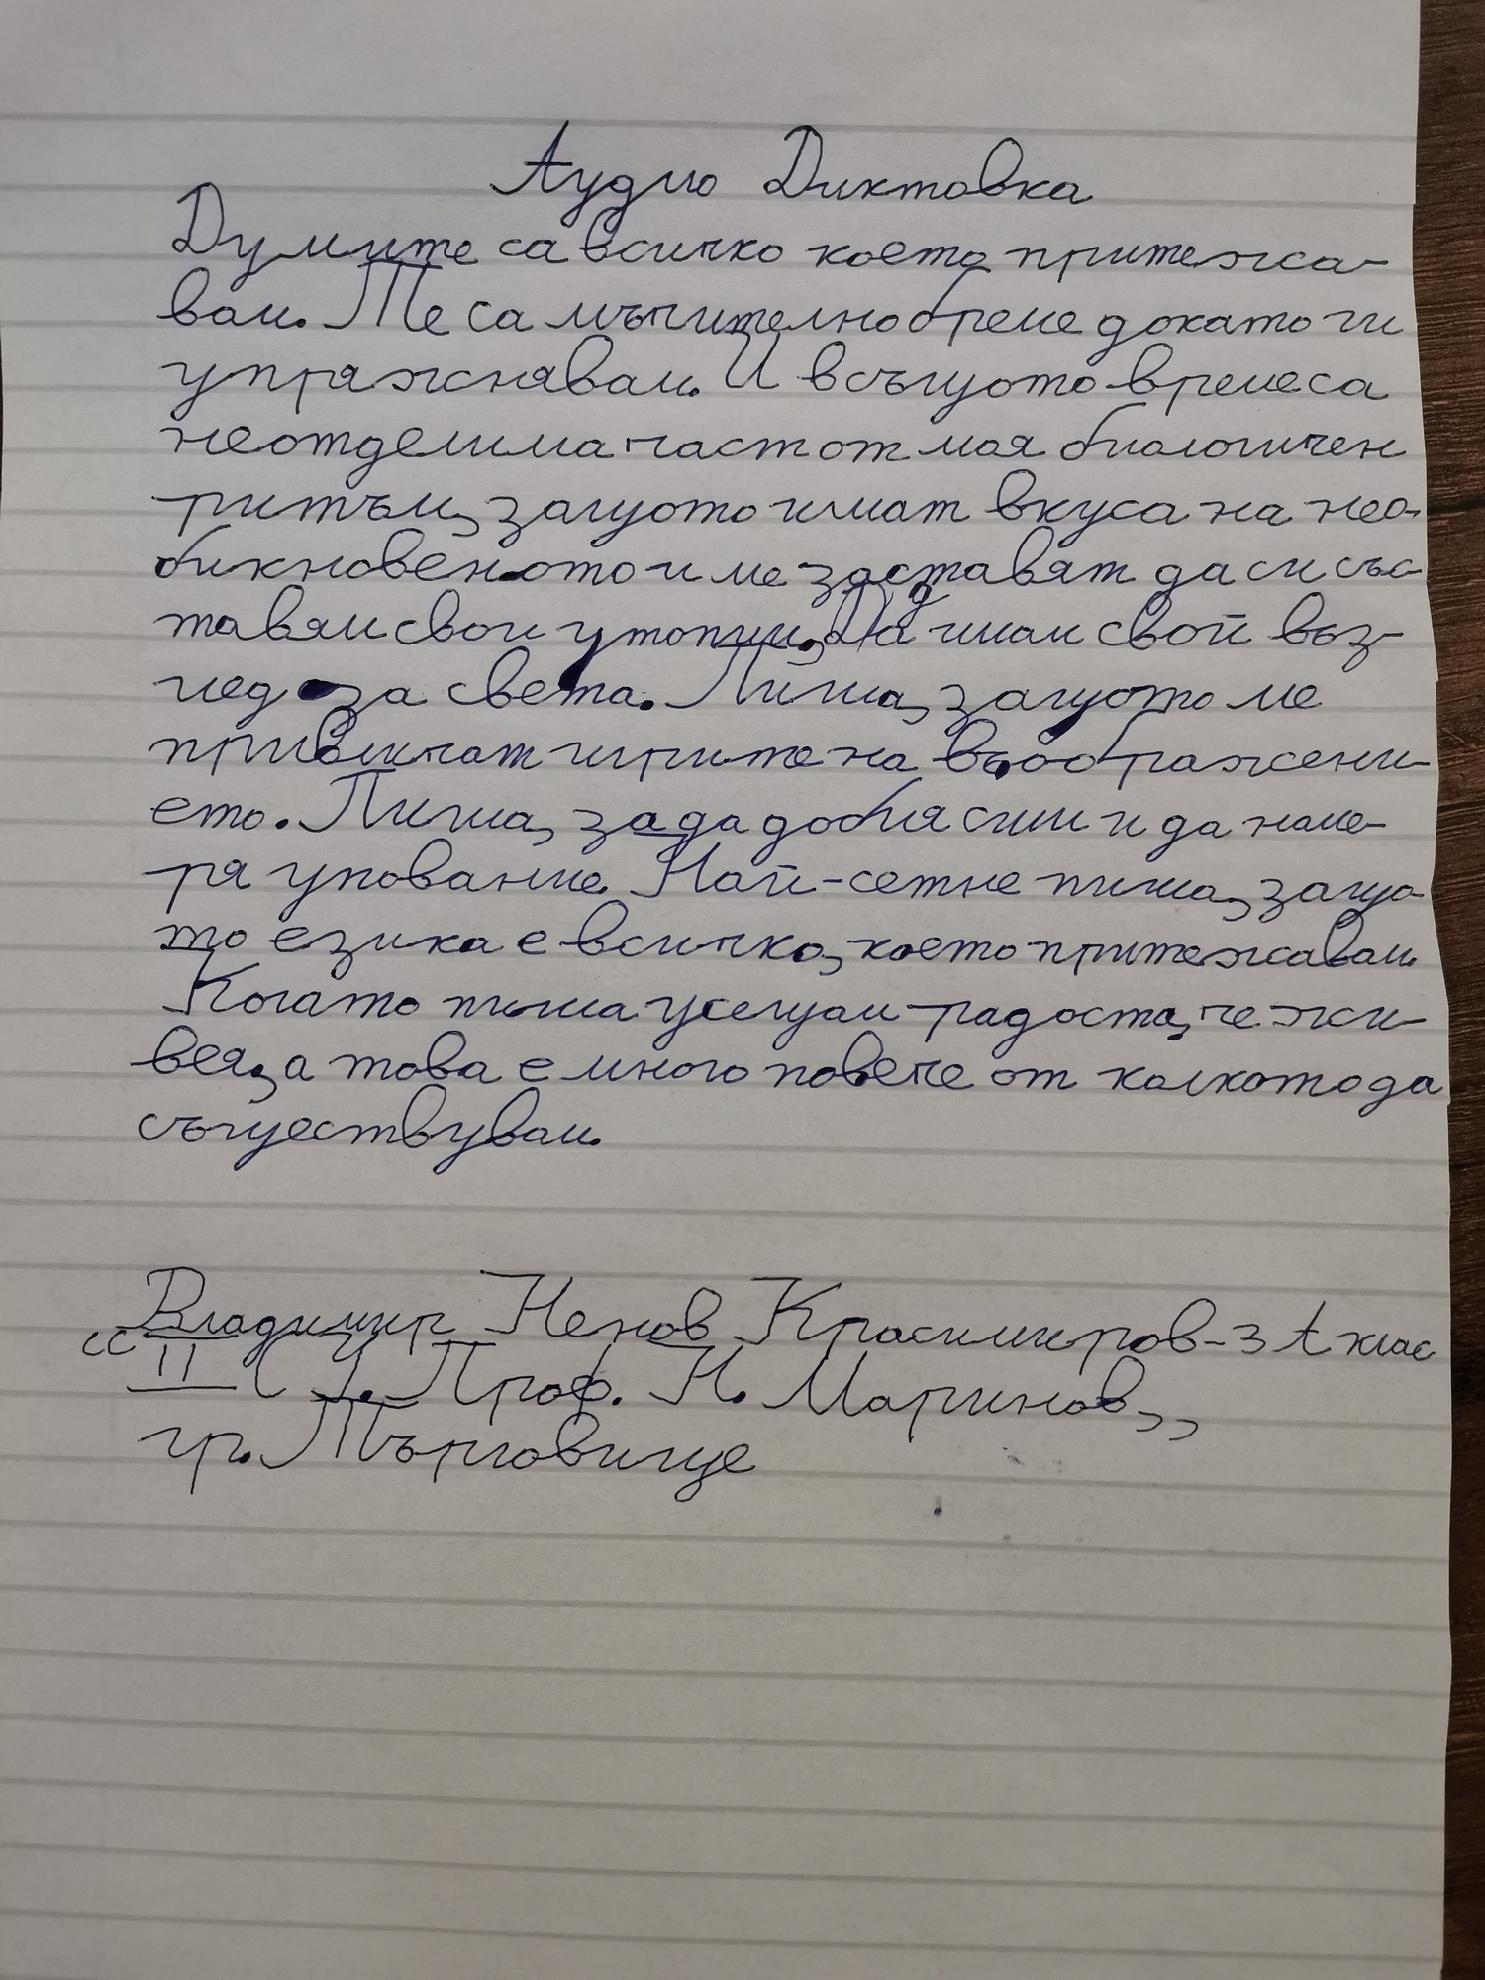 Аудио Диктовка
Думите са всичко което притежа-
вам. Те са мъчително бреме докато ги
упражнявам. И в същото време са
неотделима част от моя биологичен
ритъм, защото имат вкуса на нео-
бикновеното и ме заставят да си със-
тавям свои утопии, Да имам свой въз-
глед за света. Пиша, защото ме
привличат игрите на въображени-
ето. Пиша, за да добия сили и да наме-
ря упование. Най-сетне пиша, защо-
то езика е всичко, което притежавам.
Когато пиша усещам радоста, че жи-
вея, а това е много повече от колкото да
съществувам.
Владимир Ненов Красимиров - 3 А клас
“ II СУ. Проф. Н. Маринов,,
гр. Търговище